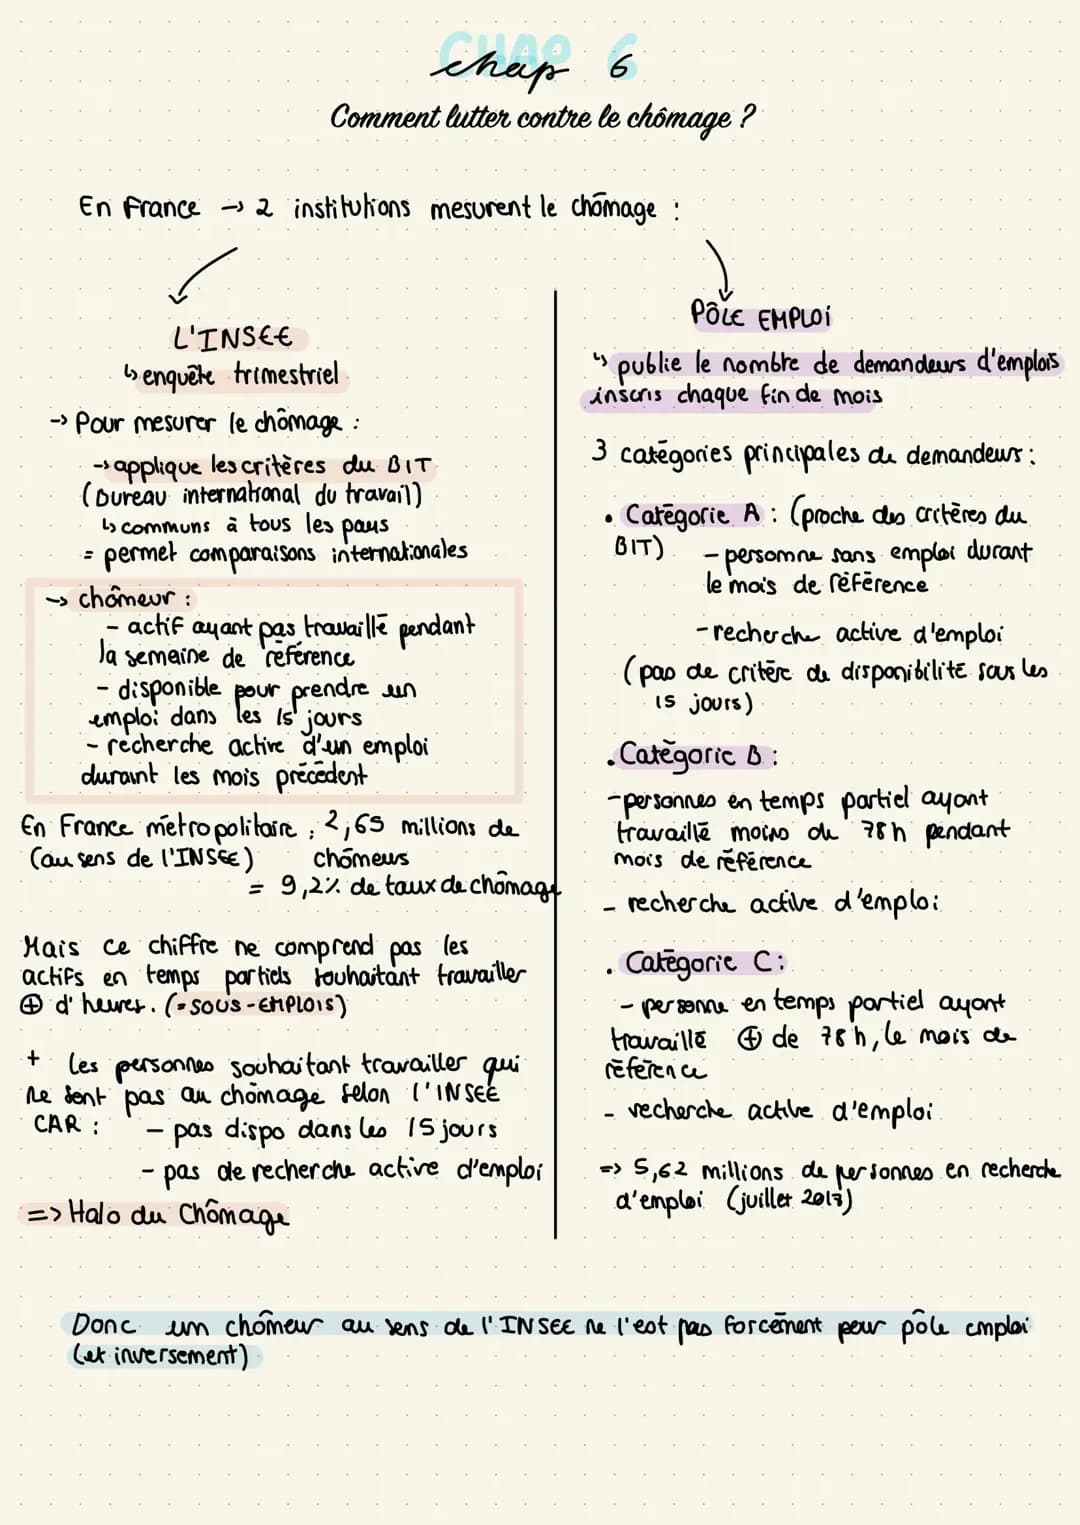 CHAP 6
chap 6
Comment lutter contre le chômage ?
En France → 2 institutions mesurent le chômage :
L'INSEE
↳ enquête trimestriel
→ Pour mesurer le chômage :
→ applique les critères du BIT
(bureau international du travail)
↳ communs à tous les pays
= permet comparaisons internationales
→ chômeur :
- actif ayant pas travaillé pendant
la semaine de référence
- disponible pour prendre un
emploi dans les 15 jours
- recherche active d'un emploi
durant les mois précédent
En France métropolitaire : 2,65 millions de
(au sens de l'INSEE) chômeurs
= 9,2% de taux de chômage
Mais ce chiffre ne comprend pas les
actifs en temps partiels souhaitant travailler
⊕ d'heures. (= SOUS-EMPLOIS)
+ les personnes souhaitant travailler qui
ne sont pas au chômage selon l'INSEE
CAR : - pas dispo dans les 15 jours
- pas de recherche active d'emploi
=> Halo du Chômage
PÔLE EMPLOI
↳ publie le nombre de demandeurs d'emplois
inscris chaque fin de mois
3 catégories principales de demandeurs :
• Catégorie A : (proche des critères du
BIT) - personne sans emploi durant
le mois de référence
- recherche active d'emploi
(pas de critère de disponibilité sous les
15 jours)
. Catégorie B :
- personnes en temps partiel ayant
travaillé moins de 78h pendant
mois de référence
- recherche active d'emploi
. Catégorie C :
- personne en temps partiel ayant
travaillé ⊕ de 78h, le mois de
référence
- recherche active d'emploi
=> 5,62 millions de personnes en recherche
d'emploi (juillet 2017)
Donc un chômeur au sens de l'INSEE ne l'est pas forcément pour pôle emploi
(et inversement)